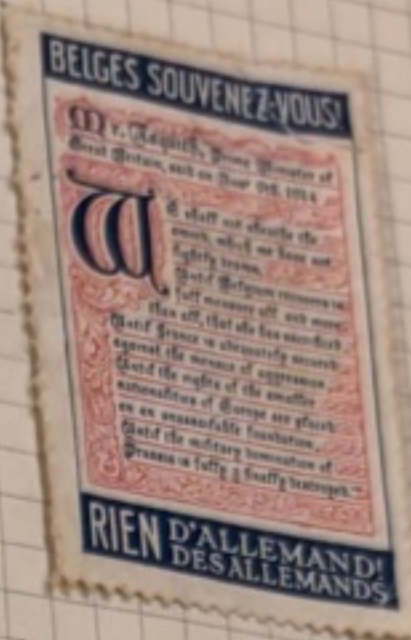 BELGES SOUVENEZ-VOUS!
Mr. Asquith, Prime Minister of
Great Britain, said on Nov 9th. 1914
WE shall not sheathe the
sword, which we have not
lightly drawn,
Until Belgium recovers in
full measure all, and more
than all, that she has sacrificed
Until France is adequately secured
against the menace of aggression
Until the rights of the smaller
nationalities of Europe are placed
on an unassailable foundation,
Until the military domination of
Prussia is fully & finally destroyed."
RIEN D'ALLEMAND!
DES ALLEMANDS